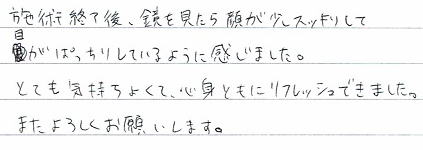 施術終了後、鏡を見たら顔が少しスッキリして
目がぱっちりしているように感じました。
とても気持ちよくて、心身ともにリフレッシュできました。
またよろしくお願いします。